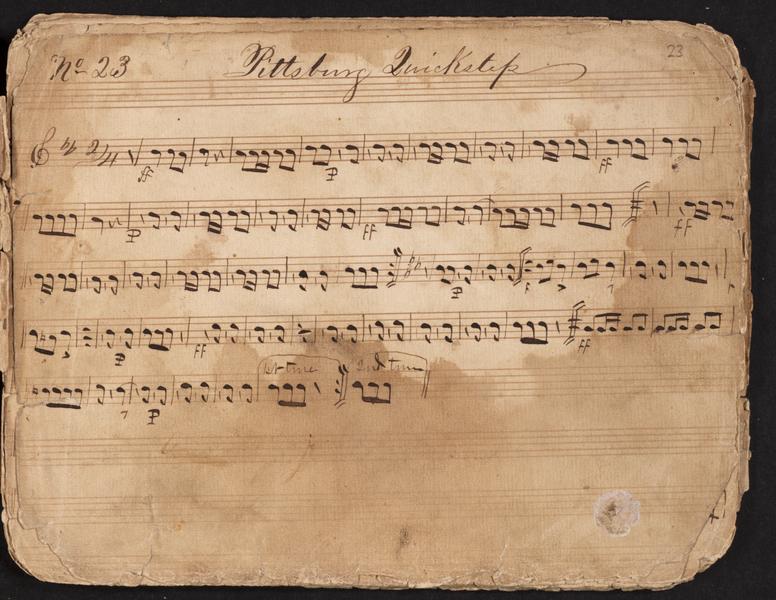 No 23 Pittsburg Quickstep 23
ff P ff
P ff ff
P
P ff ff
1st time 2nd time
P